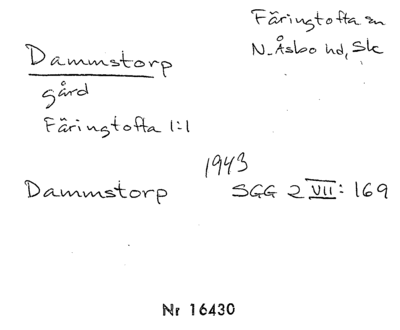 Färingtofta sn
N. Åsbo hd, Sk
Dammstorp
gård
Färingtofta 1:1
1943
Dammstorp SGG 2 VII: 169
Nr 16430